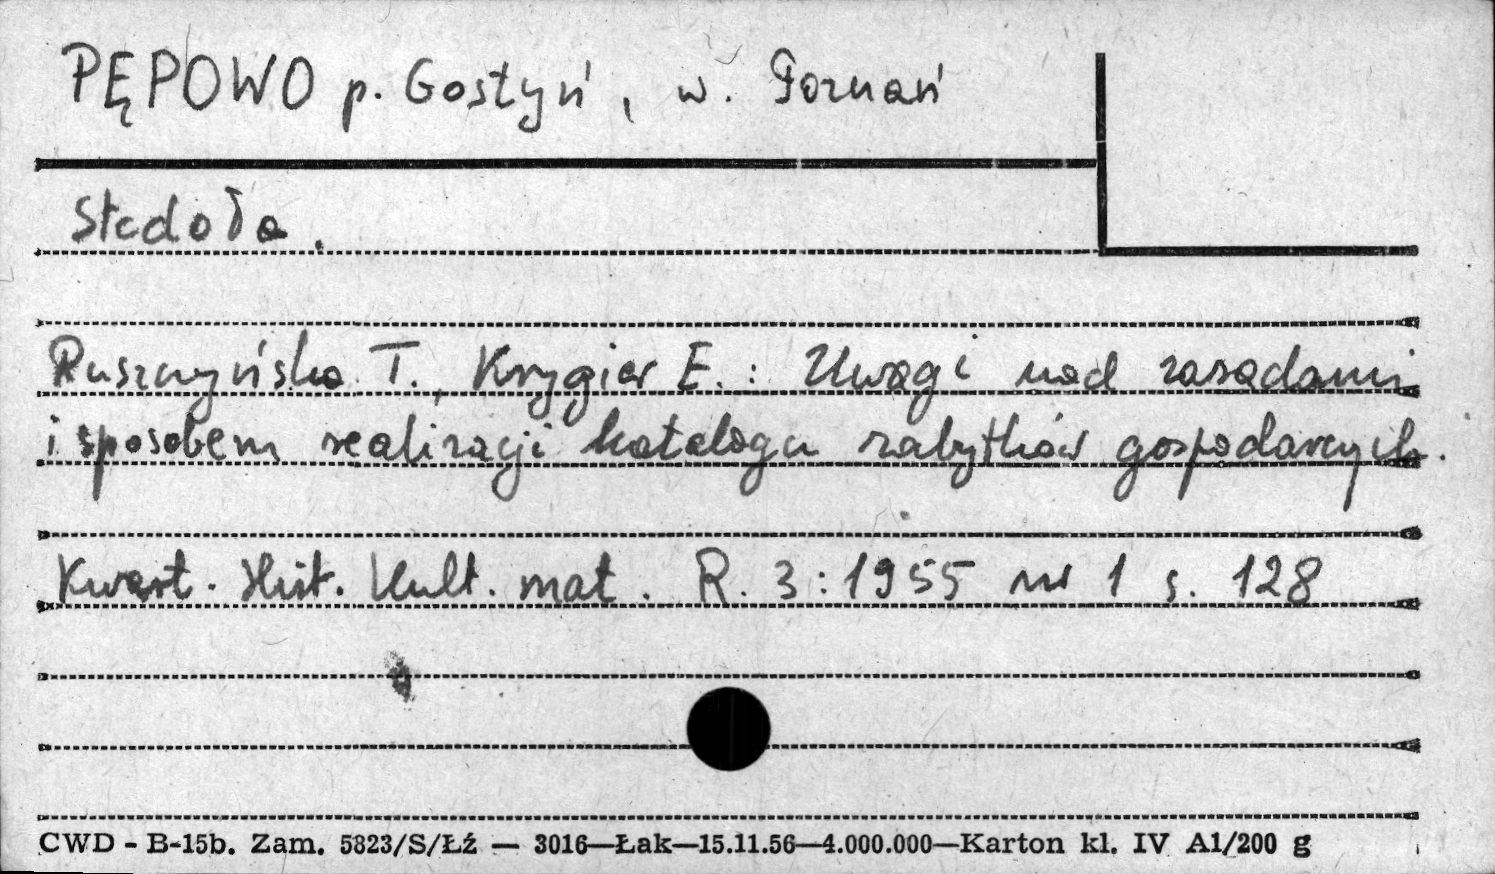 PĘPOWO p. Gostyń, w. Poznań
Stodoła.
Ruszczyńska T., Krygier E.: Uwagi nad zasadami
i sposobem realizacji katalogu zabytków gospodarczych.
Kwart. Hist. Kult. mat. R. 3:1955 nr 1 s. 128
CWD - B-15b. Zam. 5823/S/Łź — 3016—Łak—15.11.56—4.000.000—Karton kl. IV A1/200 g